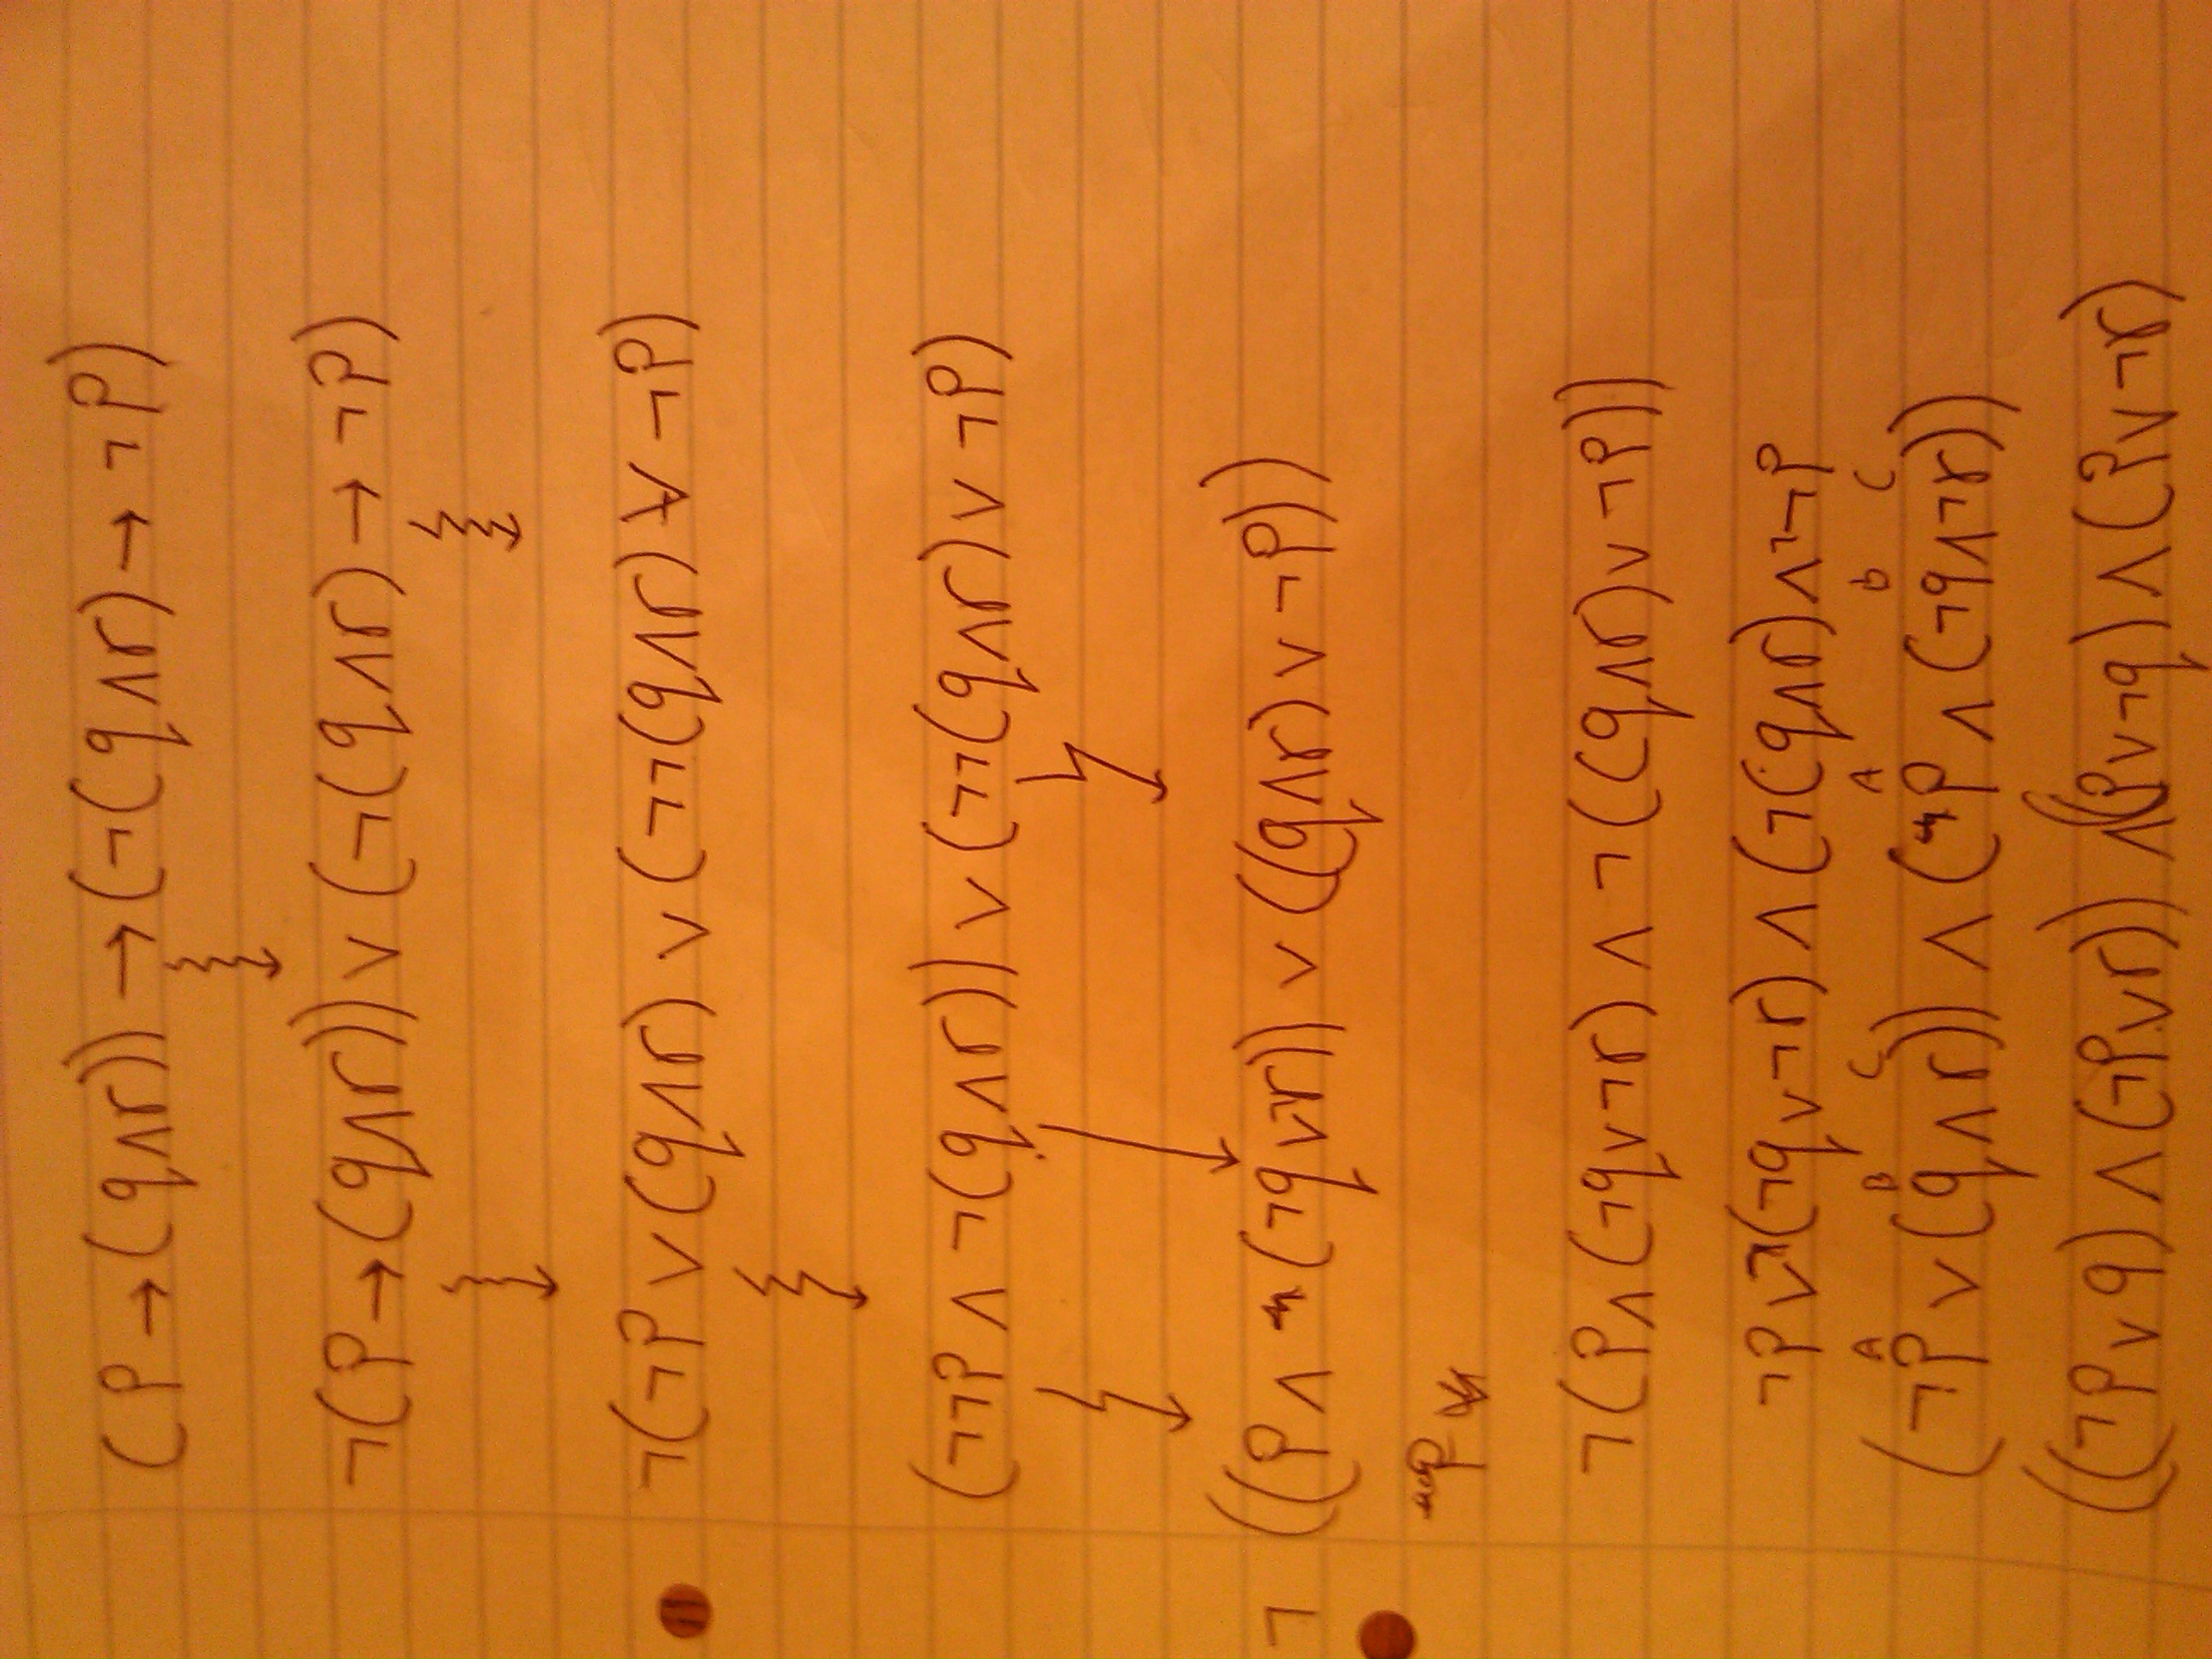 (P → (q ∧ r)) → (¬(q ∧ r) → ¬P)
¬(P → (q ∧ r)) ∨ (¬(q ∧ r) → ¬P)
¬(¬P ∨ (q ∧ r) ∨ (¬¬(q ∧ r) ∨ ¬P)
(¬¬P ∧ ¬(q ∧ r)) ∨ (¬¬(q ∧ r) ∨ ¬P)
¬ ((P ∧ (¬q ∨ ¬r)) ∨ ((q ∧ r) ∨ ¬P))
¬(P ∧ (¬q ∨ ¬r) ∧ ¬((q ∧ r) ∨ ¬P))
¬P ∨ ¬(¬q ∨ ¬r) ∧ (¬(q ∧ r) ∧ ¬¬P
A B C A b C
(¬P ∨ (q ∧ r)) ∧ (P ∧ (¬q ∧ ¬r))
((¬P ∨ q) ∧ (¬P ∨ r)) ∧ ((P ∨ ¬q) ∧ (P ∨ ¬r)